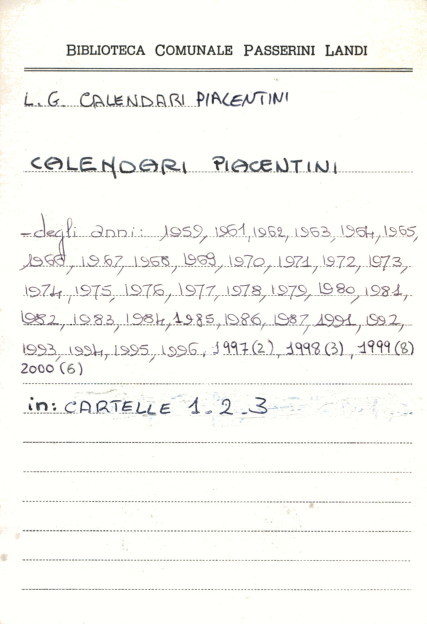 BIBLIOTECA COMUNALE PASSERINI LANDI
L. G. CALENDARI PIACENTINI
CALENDARI PIACENTINI
- degli anni: 1959, 1961, 1962, 1963, 1964, 1965,
1966, 1967, 1968, 1969, 1970, 1971, 1972, 1973,
1974, 1975, 1976, 1977, 1978, 1979, 1980, 1981,
1982, 1983, 1984, 1985, 1986, 1987, 1991, 1992,
1993, 1994, 1995, 1996, 1997(2), 1998(3), 1999(8)
2000(6)
in: CARTELLE 1-2-3